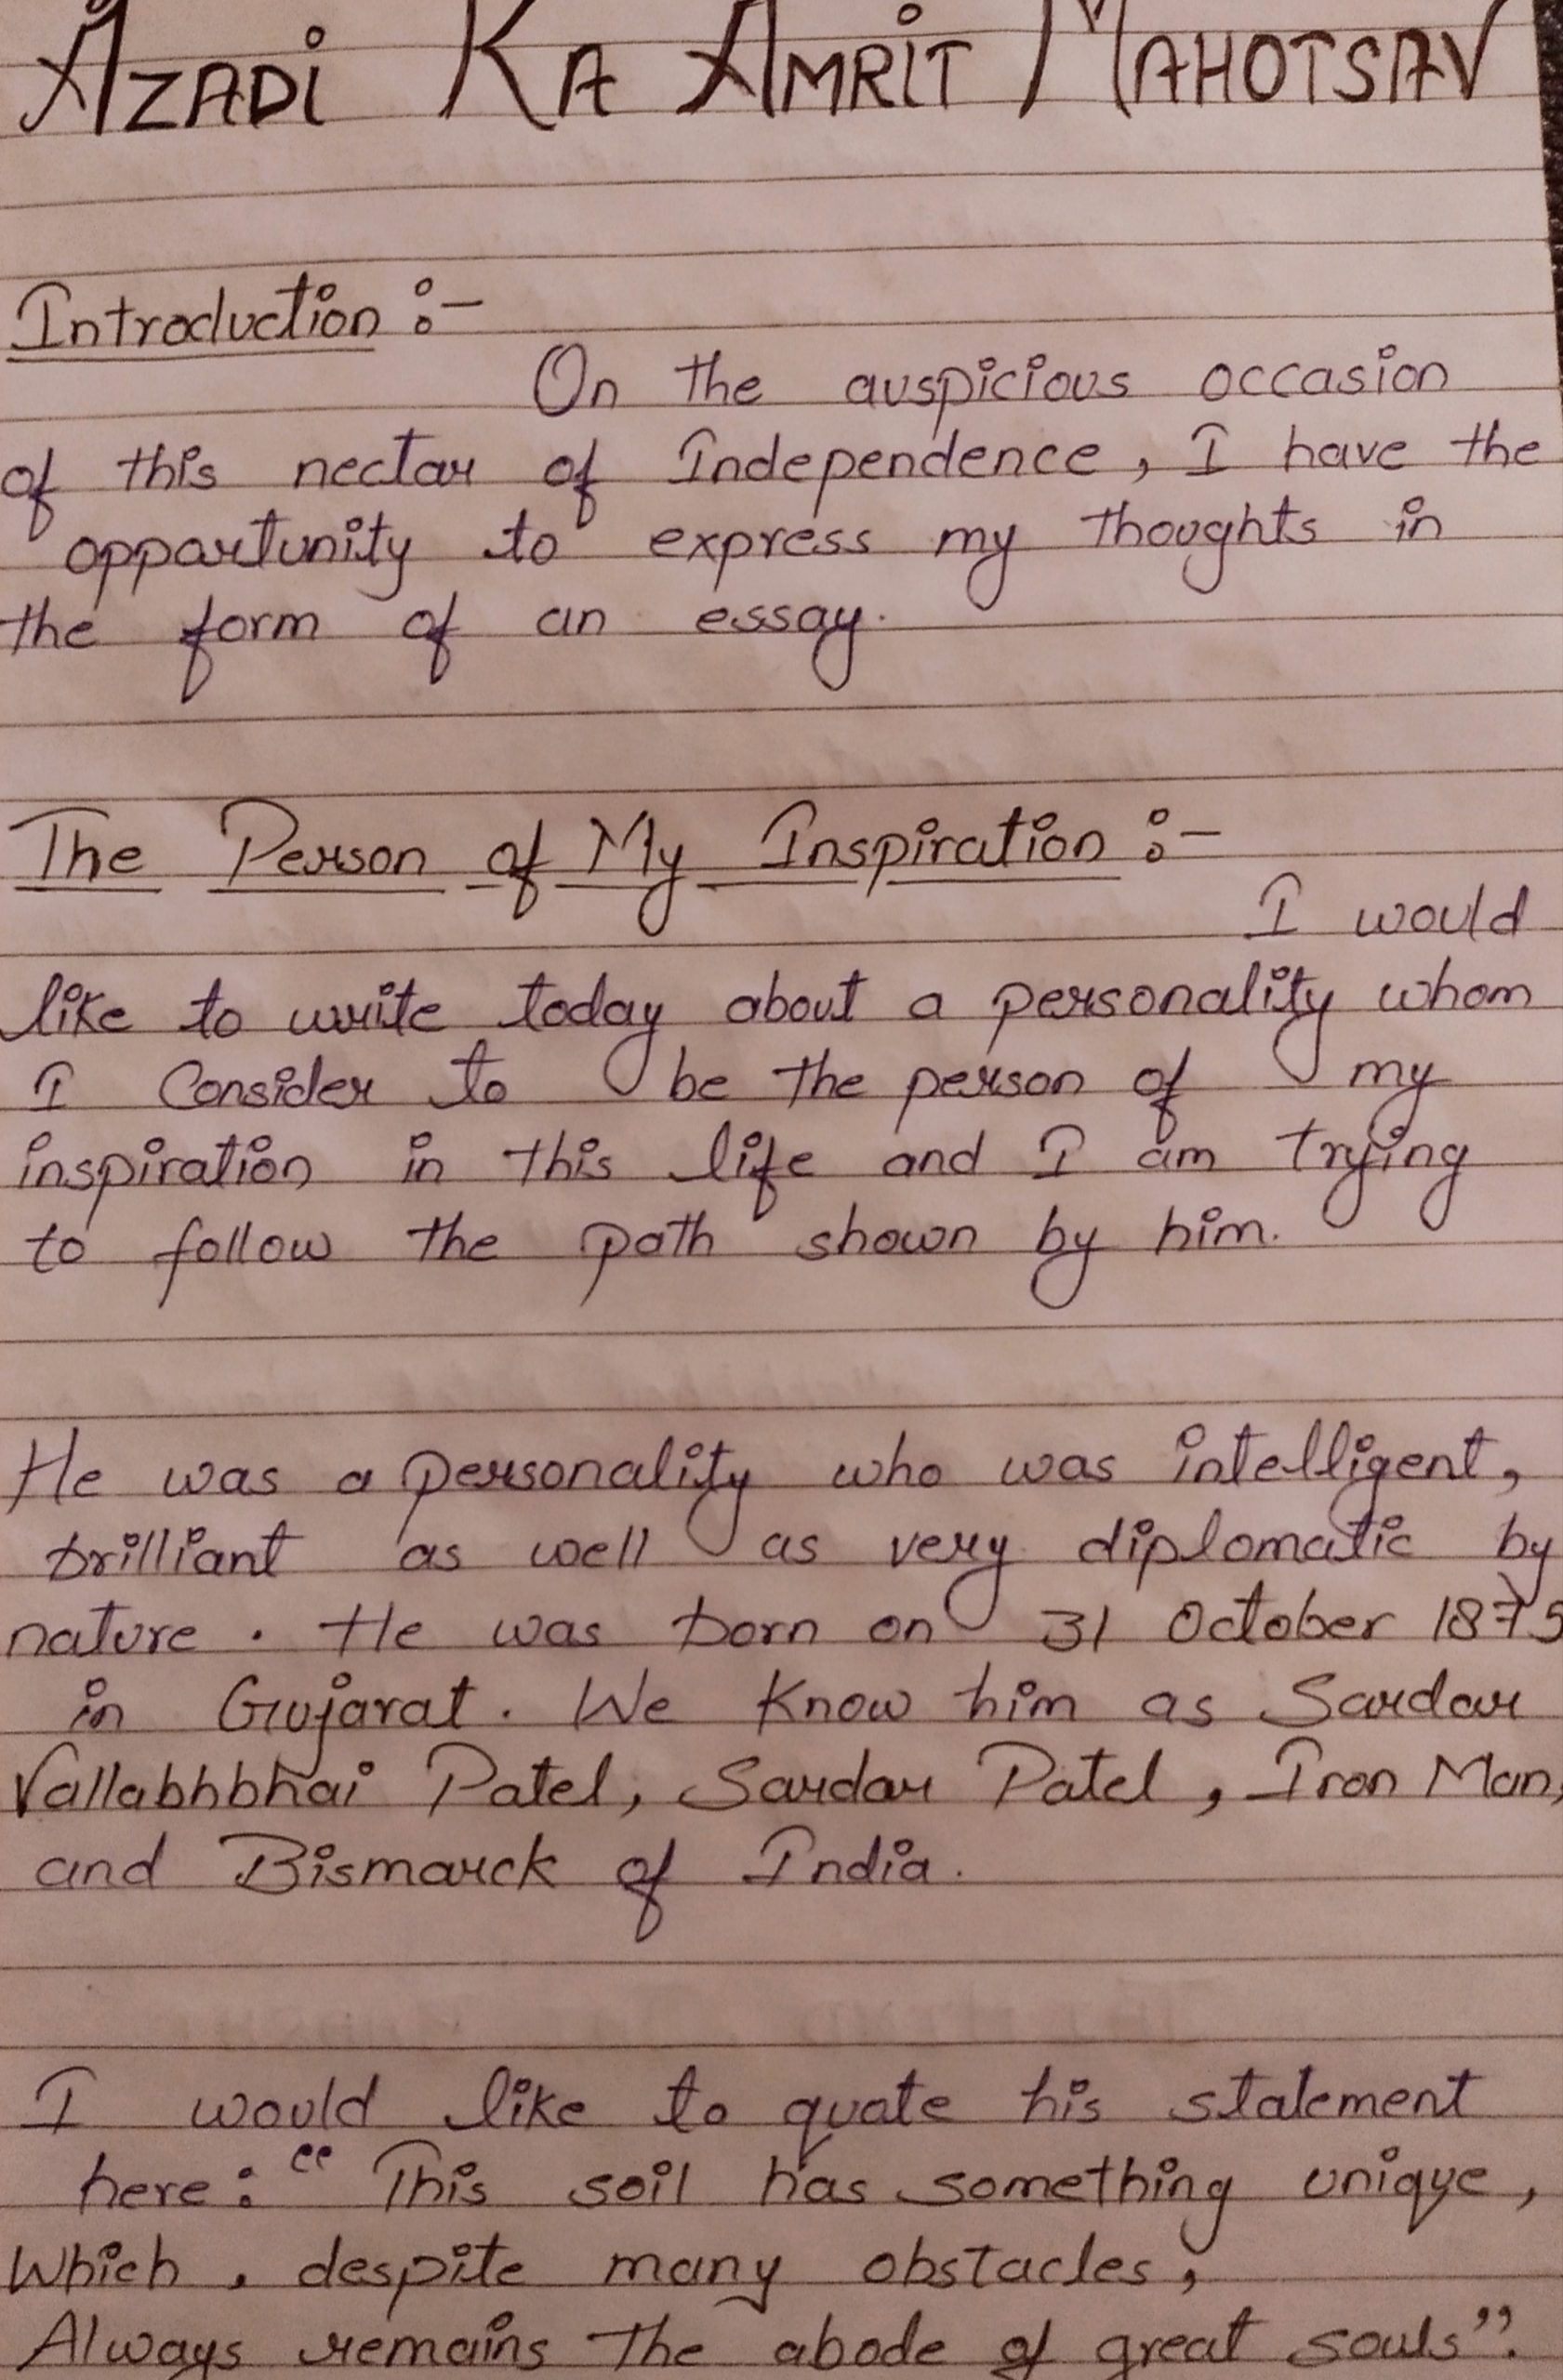 AZADI KA AMRIT MAHOTSAV
Introduction :-
On the auspicious occasion
of this nectar of Independence, I have the
opportunity to express my thoughts in
the form of an essay.
The Person of My Inspiration :-
I would
like to write today about a personality whom
I Consider to be the person of my
inspiration in this life and I am trying
to follow the path shown by him.
He was a personality who was intelligent,
brilliant as well as very diplomatic by
nature. He was born on 31 October 1875
in Gujarat. We Know him as Sardar
Vallabhbhai Patel, Sardar Patel, Iron Man,
and Bismarck of India.
I would like to quote his statement
here: "This soil has something unique,
Which, despite many obstacles,
Always remains the abode of great souls".